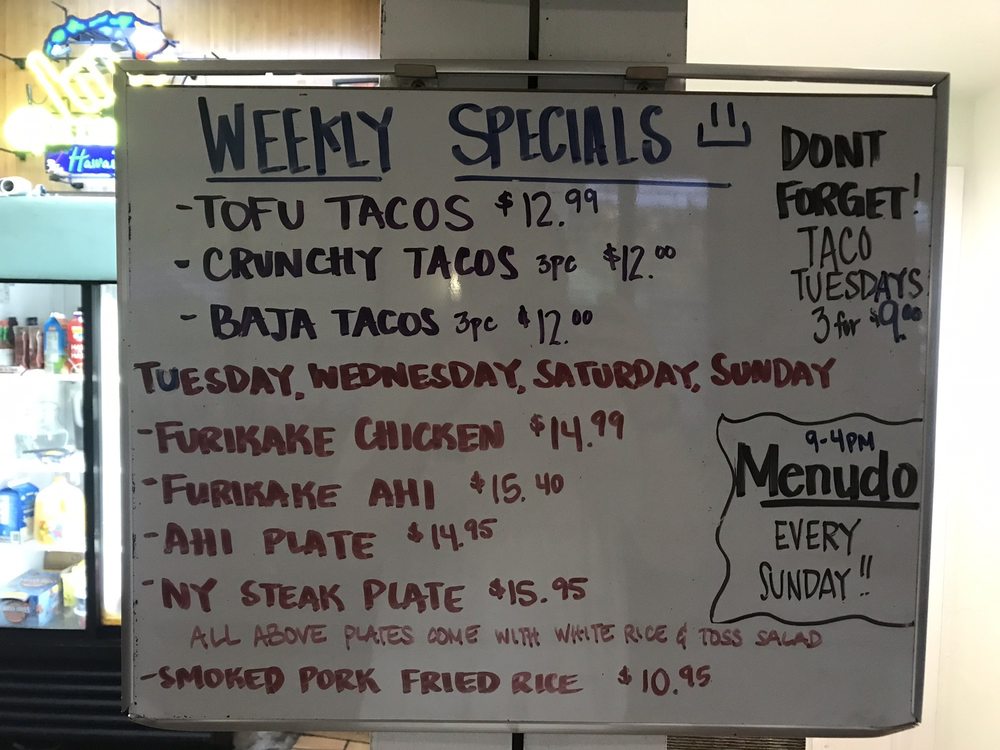 WEEKLY SPECIALS
-TOFU TACOS $12.99
- CRUNCHY TACOS 3PC $12.00
- BAJA TACOS 3PC $12.00
TUESDAY, WEDNESDAY, SATURDAY, SUNDAY
-FURIKAKE CHICKEN $14.99
-FURIKAKE AHI $15.40
-AHI PLATE $14.95
-NY STEAK PLATE $15.95
ALL ABOVE PLATES COME WITH WHITE RICE & TOSS SALAD
-SMOKED PORK FRIED RICE $10.95
DONT
FORGET!
TACO
TUESDAYS
3 for $9.00
9-4PM
Menudo
EVERY
SUNDAY!!